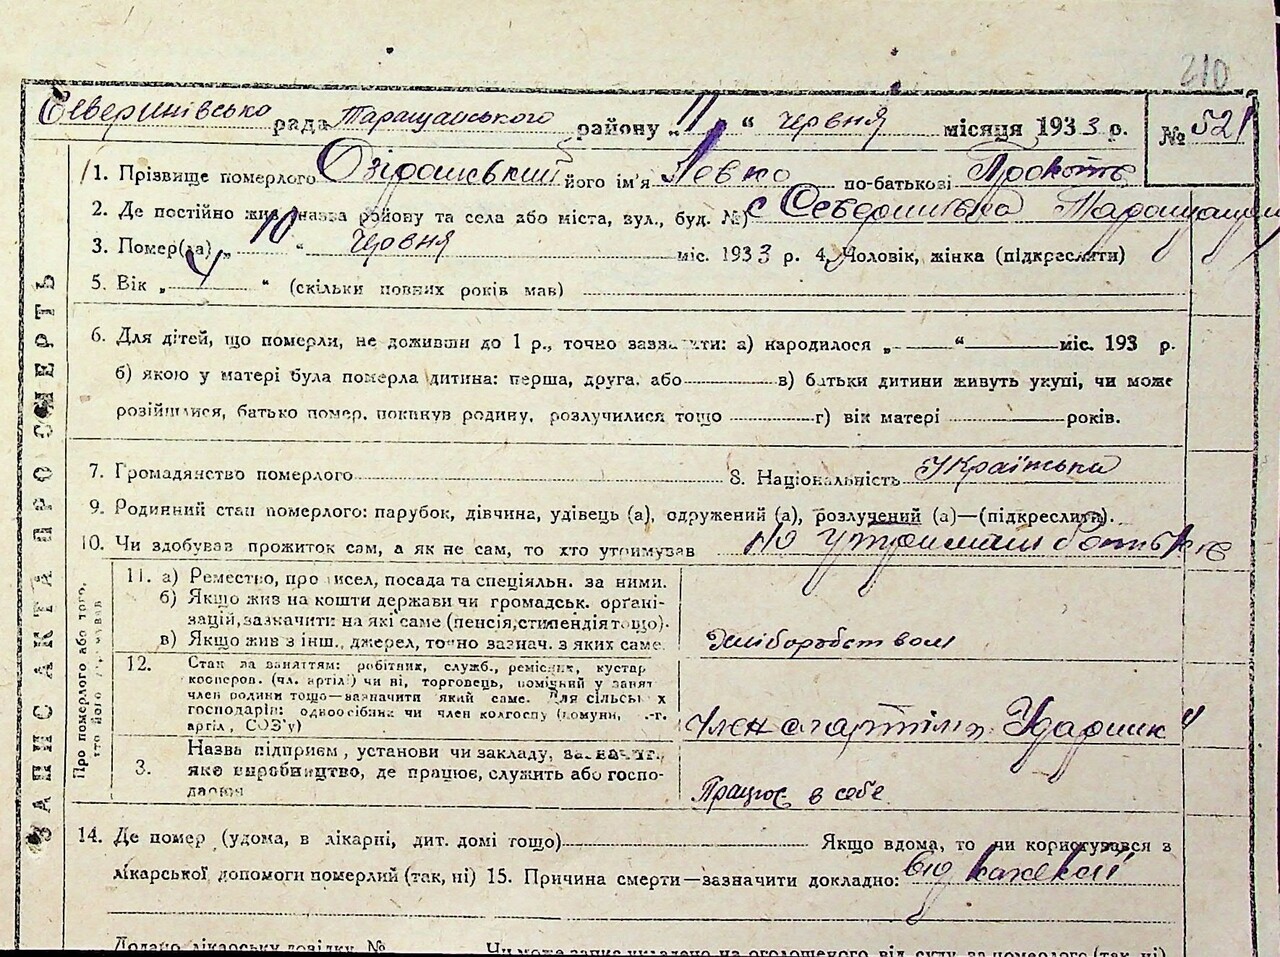 210
Северинівсько рада Таращанського району „11“ червня місяця 1933 р. № 521
1. Прізвище померлого його ім'я Левко по-батькові
2. Де постійно жив (назва району та села або міста, вул., буд. №) с Северинівка
3. Помер(ла) „10“ червня міс. 1933 р. 4. Чоловік, жінка (підкреслити)
5. Вік „4“ (скільки повних років мав)
6. Для дітей, що померли, не доживши до 1 р., точно зазначити: а) народилося „ “ міс. 193 р.
б) якою у матері була померла дитина: перша, друга, або в) батьки дитини живуть укупі, чи може
розійшлися, батько помер, покинув родину, розлучилися тощо г) вік матері років.
7. Громадянство померлого 8. Національність Українська
9. Родинний стан померлого: парубок, дівчина, удівець (а), одружений (а), розлучений (а)—(підкреслити).
10. Чи здобував прожиток сам, а як не сам, то хто утримував на утриманні батьків
ЗАПИС АКТА ПРО СМЕРТЬ
Про померлого або того, хто його утримував
11. а) Ремество, промисел, посада та спеціяльн. за ними.
б) Якщо жив на кошти держави чи громадськ. органі-
зацій, зазначити на які саме (пенсія, стипендія тощо).
в) Якщо жив з інш. джерел, точно зазнач. з яких саме.
Хліборобством
12. Стан за заняттям: робітник, служб., ремісник, кустар
кооперов. (чл. артілі) чи ні, торговець, помічний у занят.
член родини тощо—зазначити який саме. Для сільськ. х
господарів: одноосібник чи член колгоспу (комуни, с.-г.
артіл., СОЗ'у)
Член с/г артілі „Ударник“
3. Назва підприєм., установи чи закладу, зазначит.
яке виробництво, де працює, служить або госпо-
дарює
Працює в себе
14. Де помер (удома, в лікарні, дит. домі тощо) Якщо вдома, то чи користувався з
лікарської допомоги померлий (так, ні) 15. Причина смерти—зазначити докладно: від
Додано лікарську довідку № Чи може запис укладено на оголошеного від суду за померлого (так, ні)